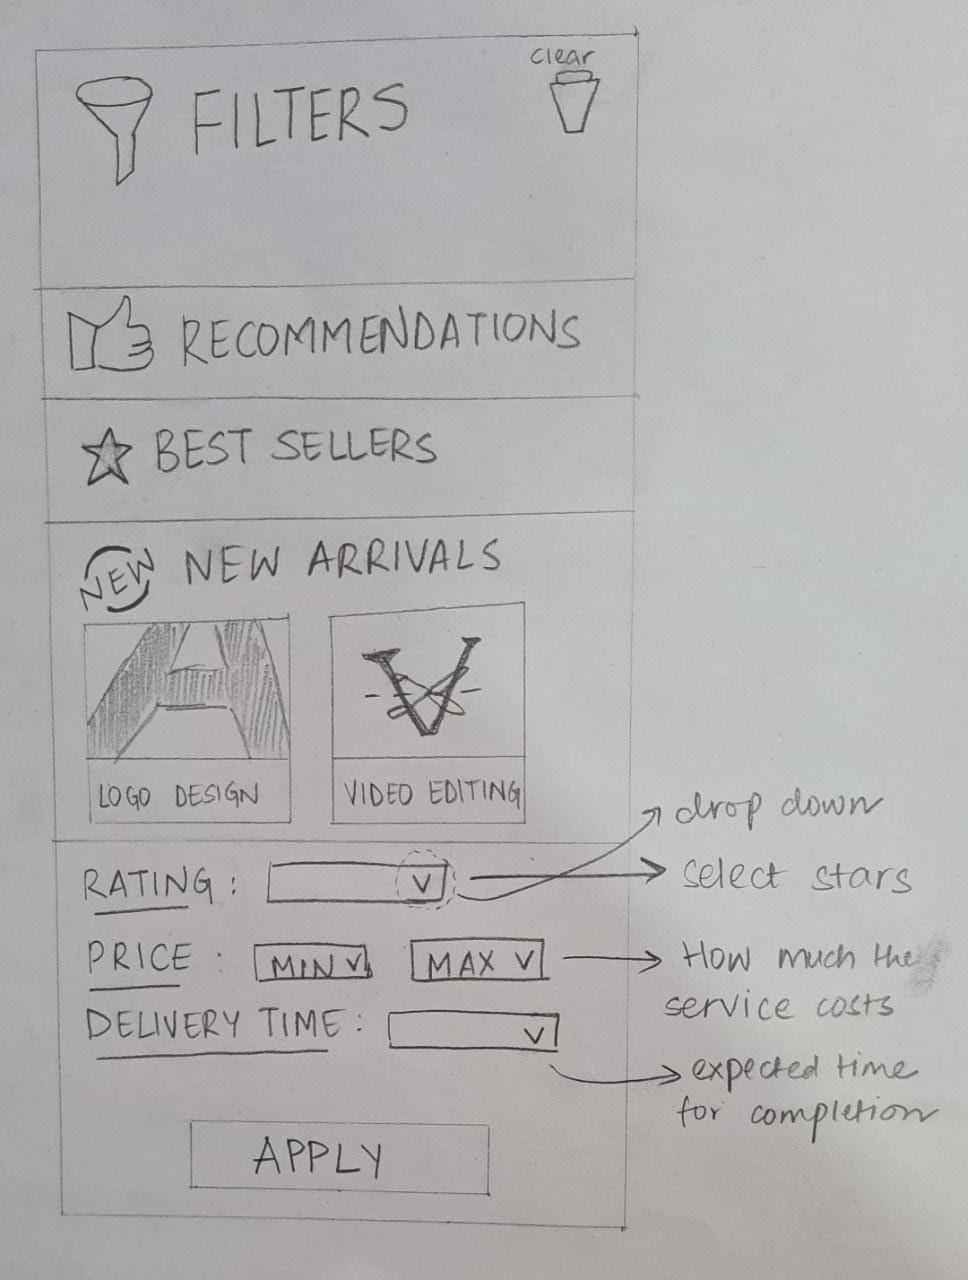 clear
FILTERS
RECOMMENDATIONS
BEST SELLERS
NEW NEW ARRIVALS
LOGO DESIGN
VIDEO EDITING
drop down
RATING : V select stars
PRICE : MIN V MAX V How much the
service costs
DELIVERY TIME : V
expected time
for completion
APPLY